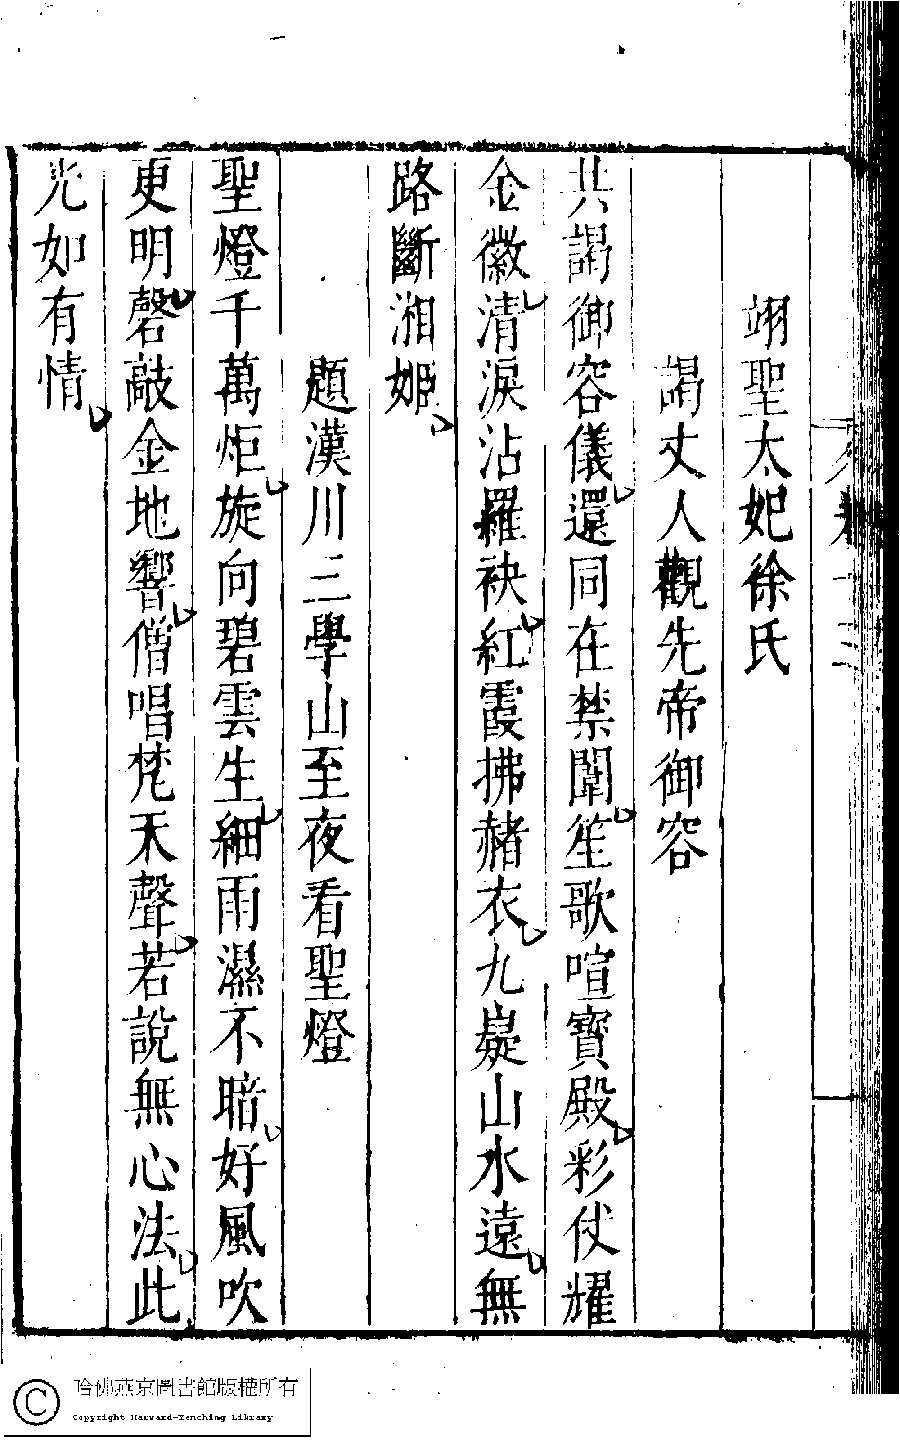 翊聖太妃徐氏
謁丈人觀先帝御容
共謁御容儀還同在禁闈笙歌喧寶殿彩仗耀
金徽清淚沾羅袂紅霞拂赭衣九嶷山水遠無
路斷湘姬
題漢川三學山至夜看聖燈
聖燈千萬炬旋向碧雲生細雨濕不暗好風吹
更明磬敲金地響僧唱梵天聲若說無心法此
光如有情
哈佛燕京圖書館版權所有
Copyright Harvard-Yenching Library